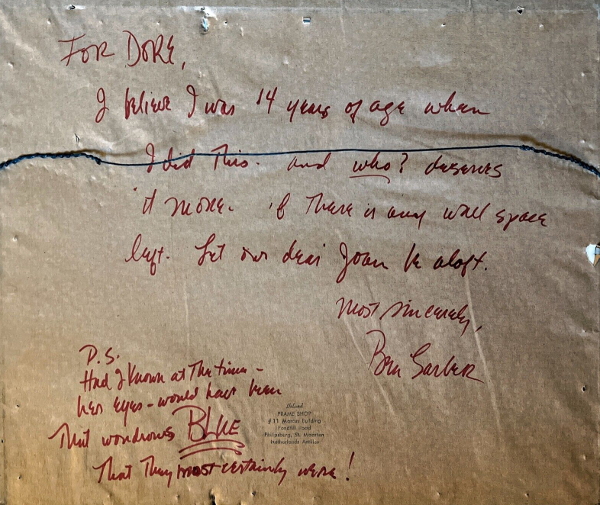 FOR DORE,
I believe I was 14 years of age when
I did This. and who? deserves
it more. if There is any wall space
left. Let our dear Joan be aloft.
Most sincerely,
Ben Garber
P.S.
Had I known at The time -
her eyes - would have been
That wondrous BLUE
That They most certainly were!
FRAME SHOP
#11 Building
Philipsburg, St. Maarten
Netherlands Antilles